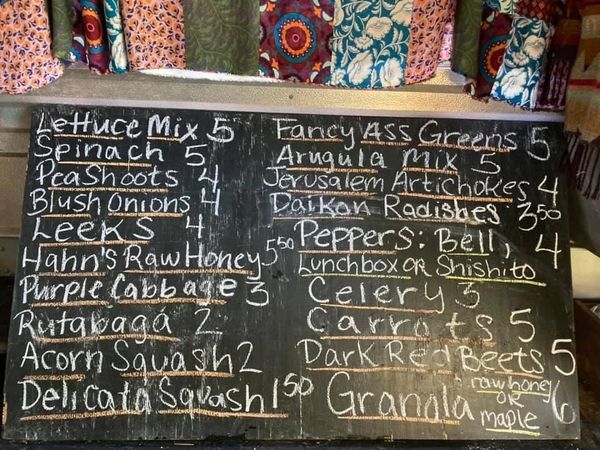 Lettuce Mix 5
Spinach 5
Pea Shoots 4
Blush Onions 4
Leeks 4
Hahn's Raw Honey 5.50
Purple Cabbage 3
Rutabaga 2
Acorn Squash 2
Delicata Squash 1.50
Fancy Ass Greens 5
Arugula Mix 5
Jerusalem Artichokes 4
Daikon Radishes 3.50
Peppers: Bell, 4
Lunchbox or Shishito
Celery 3
Carrots 5
Dark Red Beets 5
Granola raw honey or maple 6